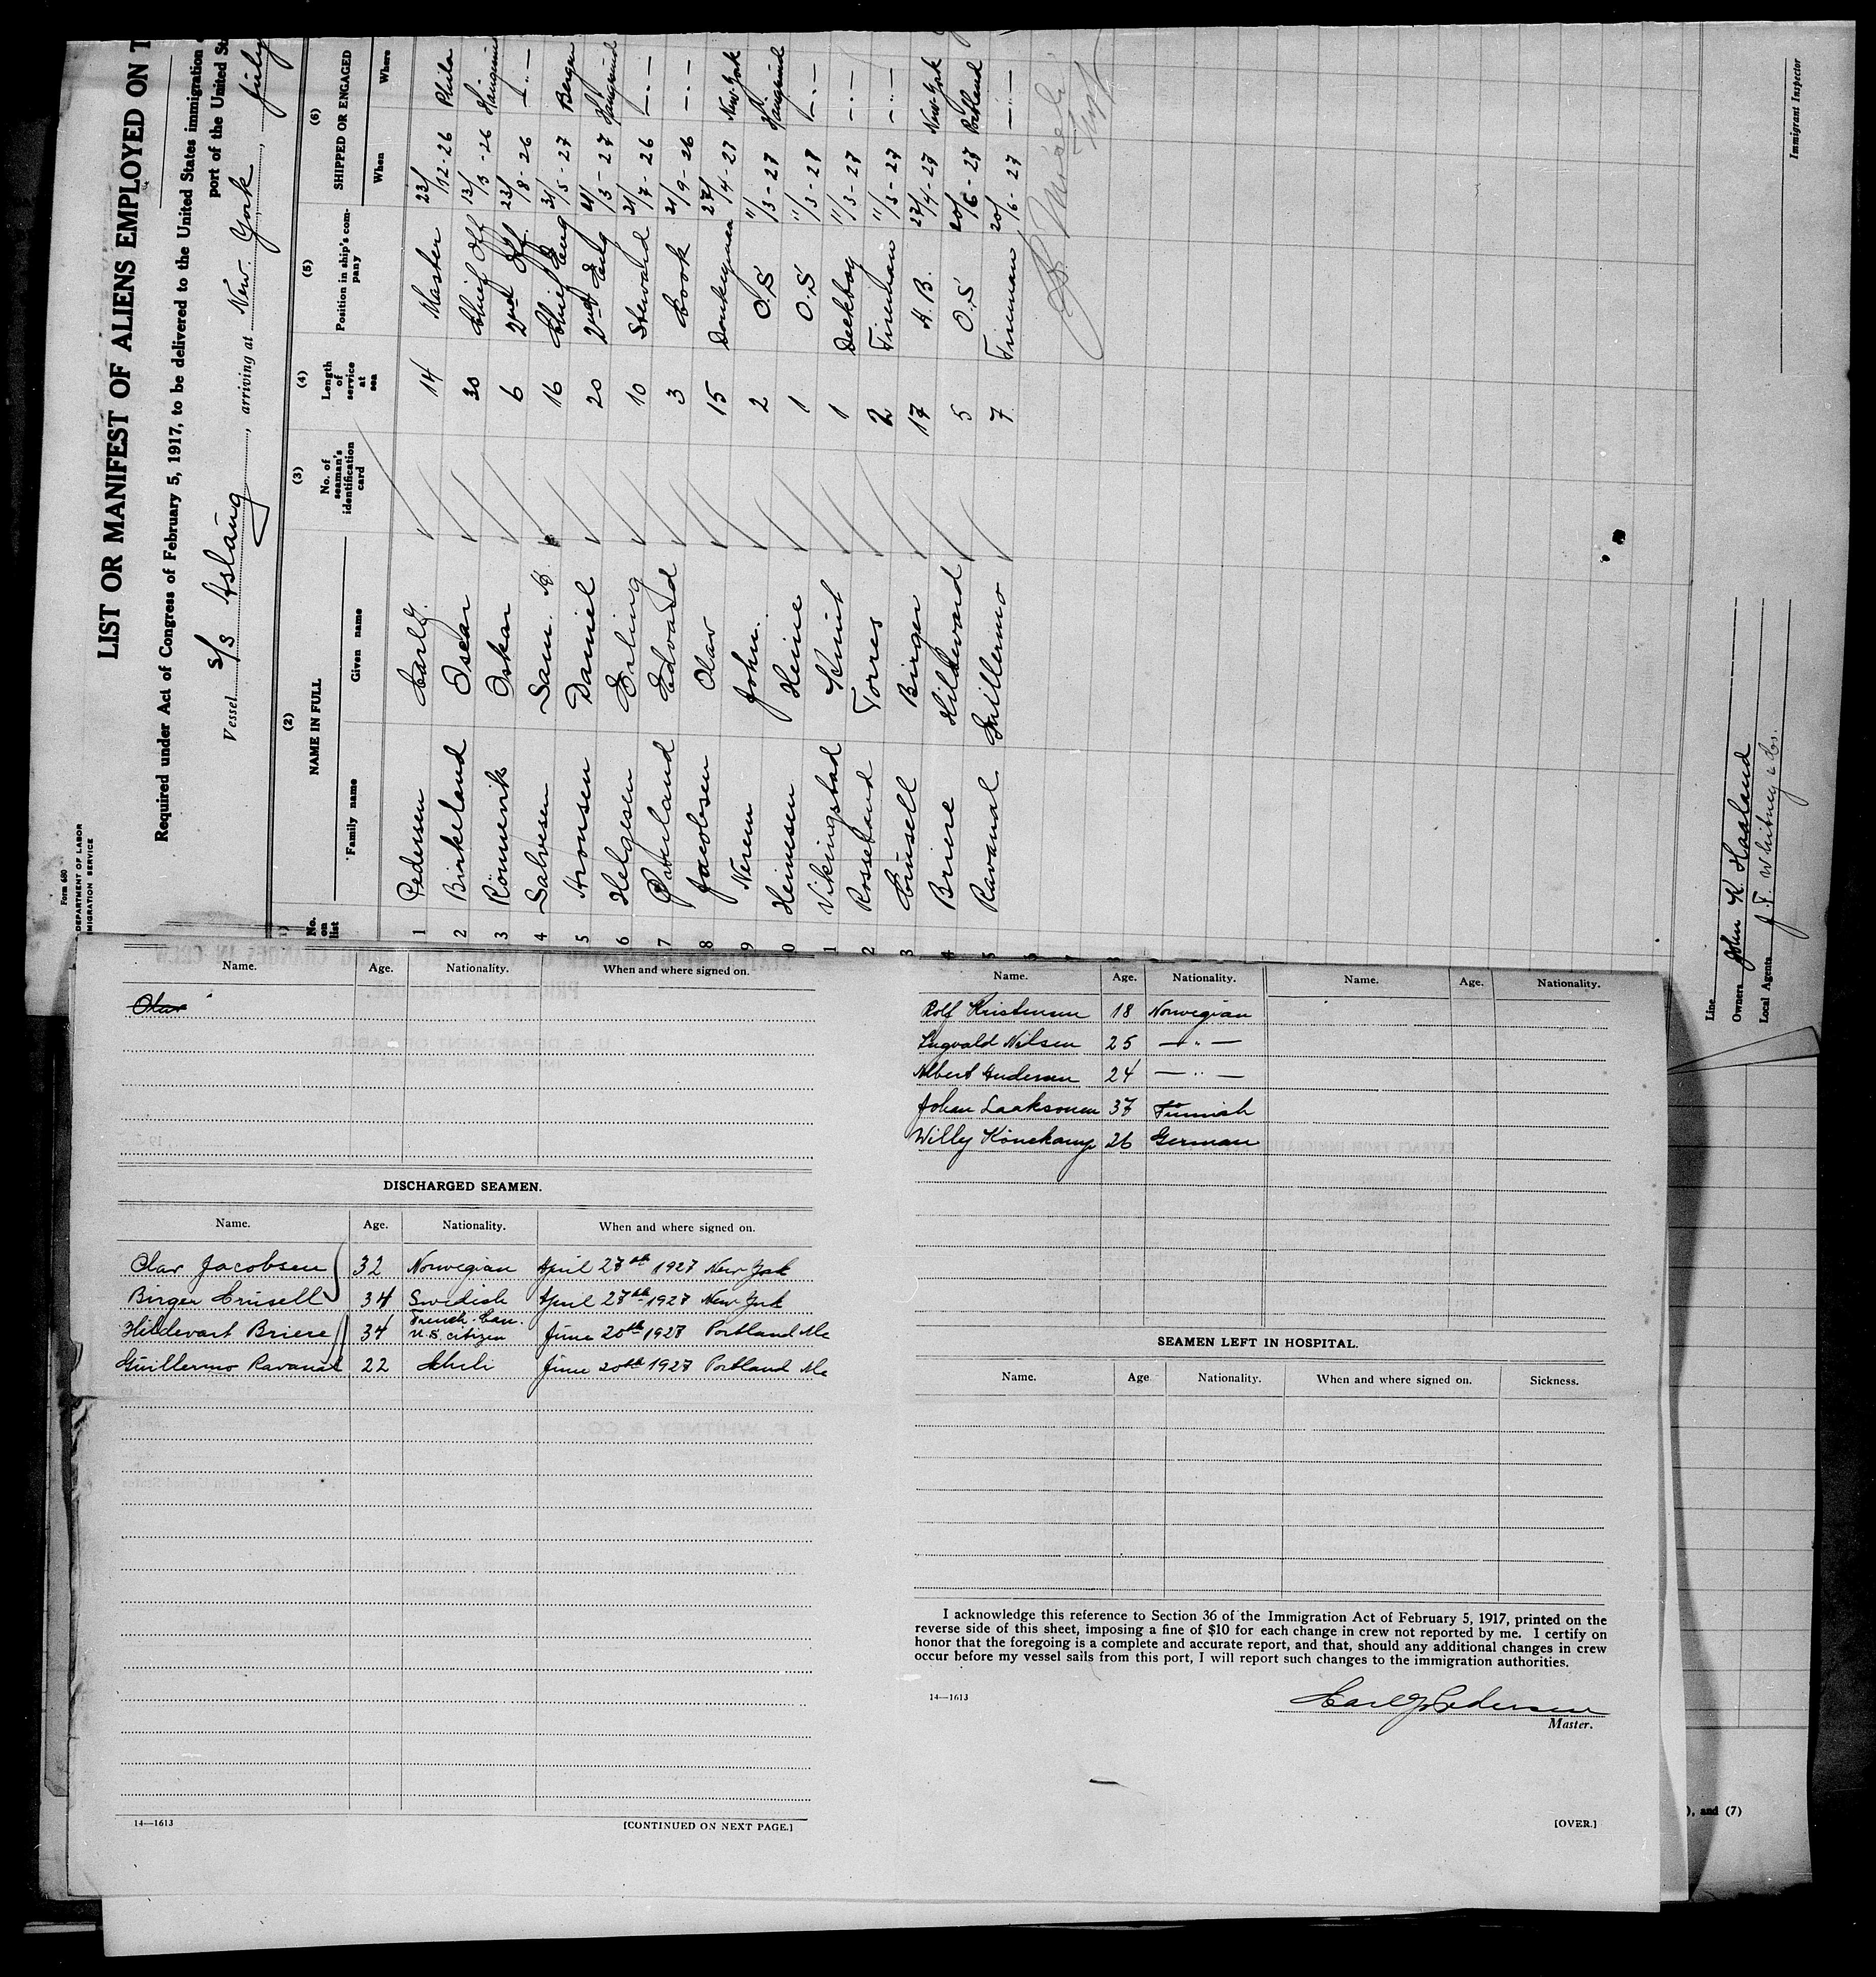 Form 680
DEPARTMENT OF LABOR
IMMIGRATION SERVICE
LIST OR MANIFEST OF ALIENS EMPLOYED ON T
Required under Act of Congress of February 5, 1917, to be delivered to the United States immigration
port of the United St
Vessel S/S Aslaug, arriving at New York, July
(2) (3) (4) (5) (6)
No. on list NAME IN FULL No. of seaman's identification card Length of service at sea Position in ship's company SHIPPED OR ENGAGED
Family name Given name When Where
1 Pedersen Carl G. 14 Master 23/12-26 Phila
2 Birkeland Oscar 30 Chief Off 13/3-26 Haugesund
3 Rönnevik Oskar 6 2nd Off 23/8-26 —„—
4 Salvesen Sam. 16 Chief Eng 31/5-27 Bergen
5 Aronsen Daniel 20 2nd Eng 11/3-27 Haugesund
6 Helgesen Erling 10 Steward 21/7-26 —„—
7 Edvard 3 Cook 21/9-26 —„—
8 Jacobsen Olav 15 Donkeyman 27/4-27 New-York
9 Nereim John. 2 O.S 11/3-27 Haugesund
0 Heinesen Heine 1 O.S 11/3-27 —„—
1 Vikingstad Knut 1 Deckboy 11/3-27 —„—
2 Rosseland Torres 2 Fireman 11/3-27 —„—
3 Crusell Birger 17 A.B. 27/4-27 New-York
4 Briere Hildevard 5 O.S 20/6-27 Portland
5 Ravanal Guillermo 7 Fireman 20/6-27 —„—
Immigrant Inspector
Line
Owners John K. Haaland
Local Agents J. F. Whitney & Co.
), and (7)
Name. Age. Nationality. When and where signed on.
Olav
DISCHARGED SEAMEN.
Name. Age. Nationality. When and where signed on.
Olav Jacobsen 32 Norwegian April 27th 1927 New York
Birger Crusell 34 Swedish April 27th 1927 New York
Hildevart Briere 34 French-Can. U.S. citizen June 20th 1927 Portland Me
Guillermo Ravanal 22 Chili June 20th 1927 Portland Me
14—1613 [CONTINUED ON NEXT PAGE.]
Name. Age. Nationality. Name. Age. Nationality.
Rolf Kristensen 18 Norwegian
Ingvald Nilsen 25 —„—
Albert Andersen 24 —„—
Johan Laaksonen 37 Finnish
Willy Könekamp 26 German
SEAMEN LEFT IN HOSPITAL.
Name. Age Nationality. When and where signed on. Sickness.
I acknowledge this reference to Section 36 of the Immigration Act of February 5, 1917, printed on the
reverse side of this sheet, imposing a fine of $10 for each change in crew not reported by me. I certify on
honor that the foregoing is a complete and accurate report, and that, should any additional changes in crew
occur before my vessel sails from this port, I will report such changes to the immigration authorities.
14—1613
Carl G Pedersen
Master.
[OVER.]